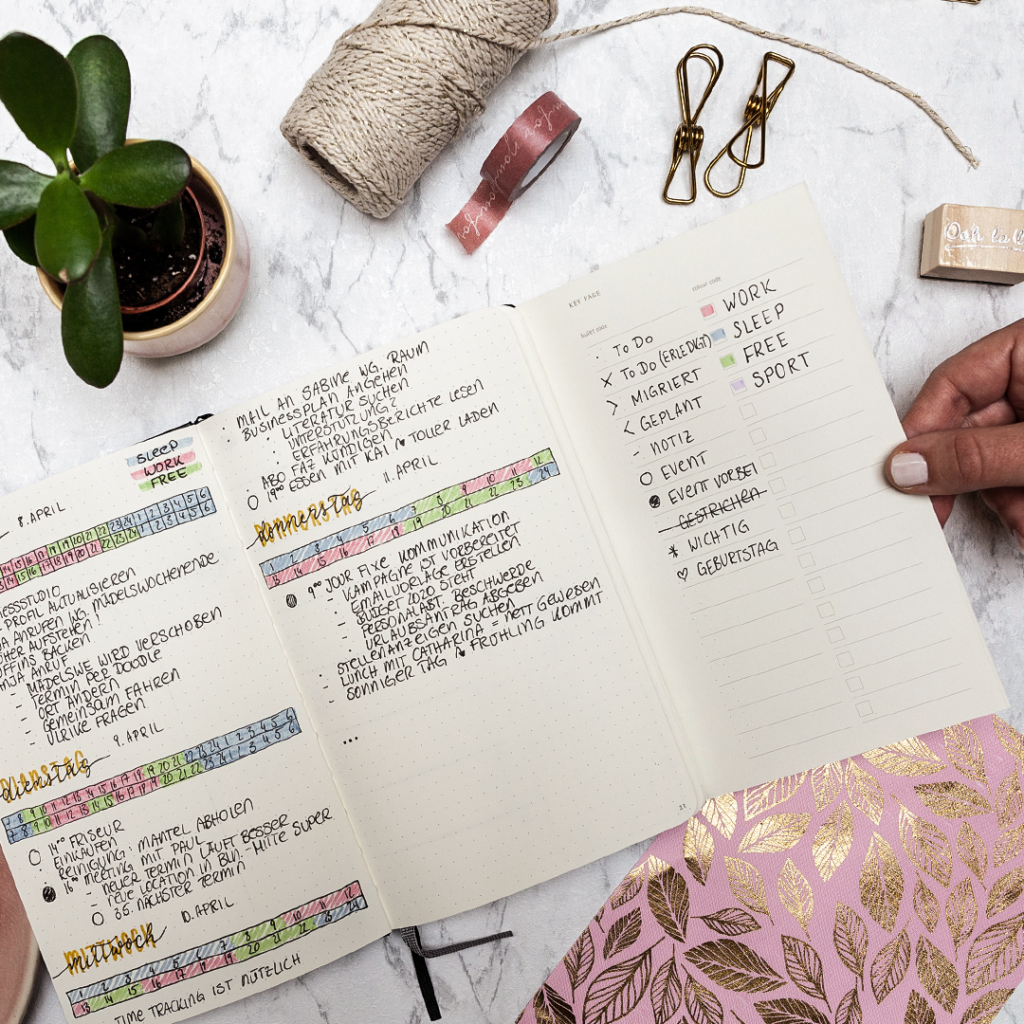 Ooh la
SLEEP
WORK
FREE
8. APRIL
PROFIL AKTUALISIEREN
ANRUFEN WG. MÄDELSWOCHENENDE
AUFSTEHEN!
BACKEN
ANRUF
- MÄDELSWE WIRD VERSCHOBEN
- TERMIN PER DOODLE
- ORT ÄNDERN
- GEMEINSAM FAHREN
- ULRIKE FRAGEN
DIENSTAG 9. APRIL
14⁰⁰ FRISEUR
EINKAUFEN
REINIGUNG: MANTEL ABHOLEN
16⁰⁰ MEETING MIT PAUL
- NEUER TERMIN LÄUFT BESSER
- NEUE LOCATION IN BLN.-MITTE SUPER
3.5. NÄCHSTER TERMIN
MITTWOCH 10. APRIL
1 2 3 4 5 6 7 8 9 10 11 12
13 14 15 16 17 18 19 20 21 22 23 24
TIME TRACKING IST NÜTZLICH
· MAIL AN SABINE WG. RAUM
· BUSINESSPLAN ANGEHEN
· LITERATUR SUCHEN
· UNTERSTÜTZUNG?
· ERFAHRUNGSBERICHTE LESEN
· ABO FAZ KÜNDIGEN
19⁰⁰ ESSEN MIT KAI TOLLER LADEN
DONNERSTAG 11. APRIL
1 2 3 4 5 6 7 8 9 10 11 12
13 14 15 16 17 18 19 20 21 22 23 24
9⁰⁰ JOUR FIXE KOMMUNIKATION
- KAMPAGNE IST VORBEREITET
- EMAILVORLAGE ERSTELLEN
- BUDGET 2020 STEHT
- PERSONALABT. BESCHWERDE
- URLAUBSANTRAG ABGEBEN
· STELLENANZEIGEN SUCHEN
- LUNCH MIT CATHARINA = NETT GEWESEN
- SONNIGER TAG FRÜHLING KOMMT
...
31
KEY PAGE
bullet code
· TO DO
X TO DO (ERLEDIGT)
> MIGRIERT
< GEPLANT
- NOTIZ
O EVENT
EVENT VORBEI
GESTRICHEN
* WICHTIG
♡ GEBURTSTAG
colour code
WORK
SLEEP
FREE
SPORT